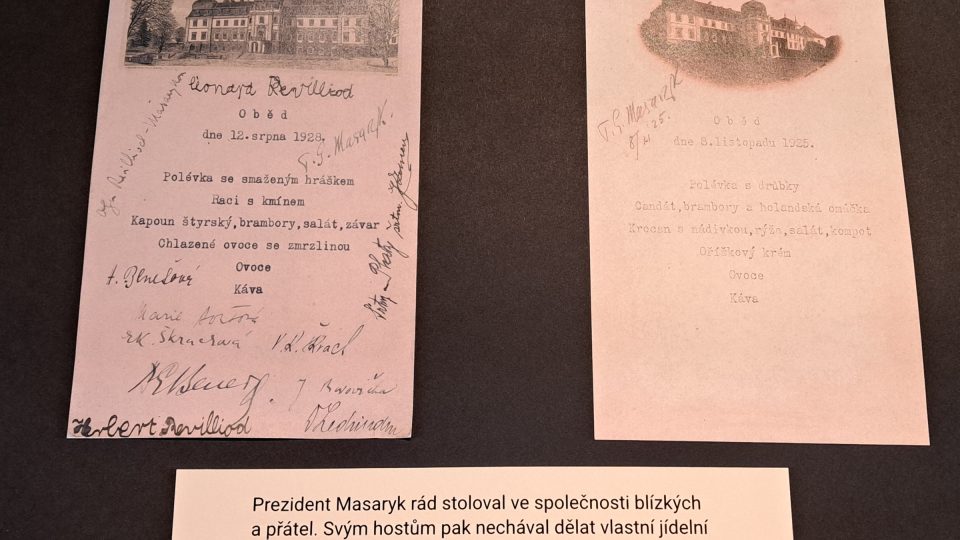 Leonard Revilliod
Oběd
dne 12.srpna 1928.
T. G. Masaryk.
Polévka se smaženým hráškem
Raci s kmínem
Kapoun štyrský,brambory,salát,závar
Chlazené ovoce se zmrzlinou
Ovoce
Káva
Revilliod-Masaryková
H. Benešová
Marie
Škrachová V.K. Škrach
Herbert Revilliod
T. G. Masaryk
Oběd
dne 8.listopadu 1925.
Polévka s drůbky
Candát,brambory a holandská omáčka
Krocan s nádivkou,rýže,salát,kompot
Oříškový krém
Ovoce
Káva
Prezident Masaryk rád stoloval ve společnosti blízkých
a přátel. Svým hostům pak nechával dělat vlastní jídelní